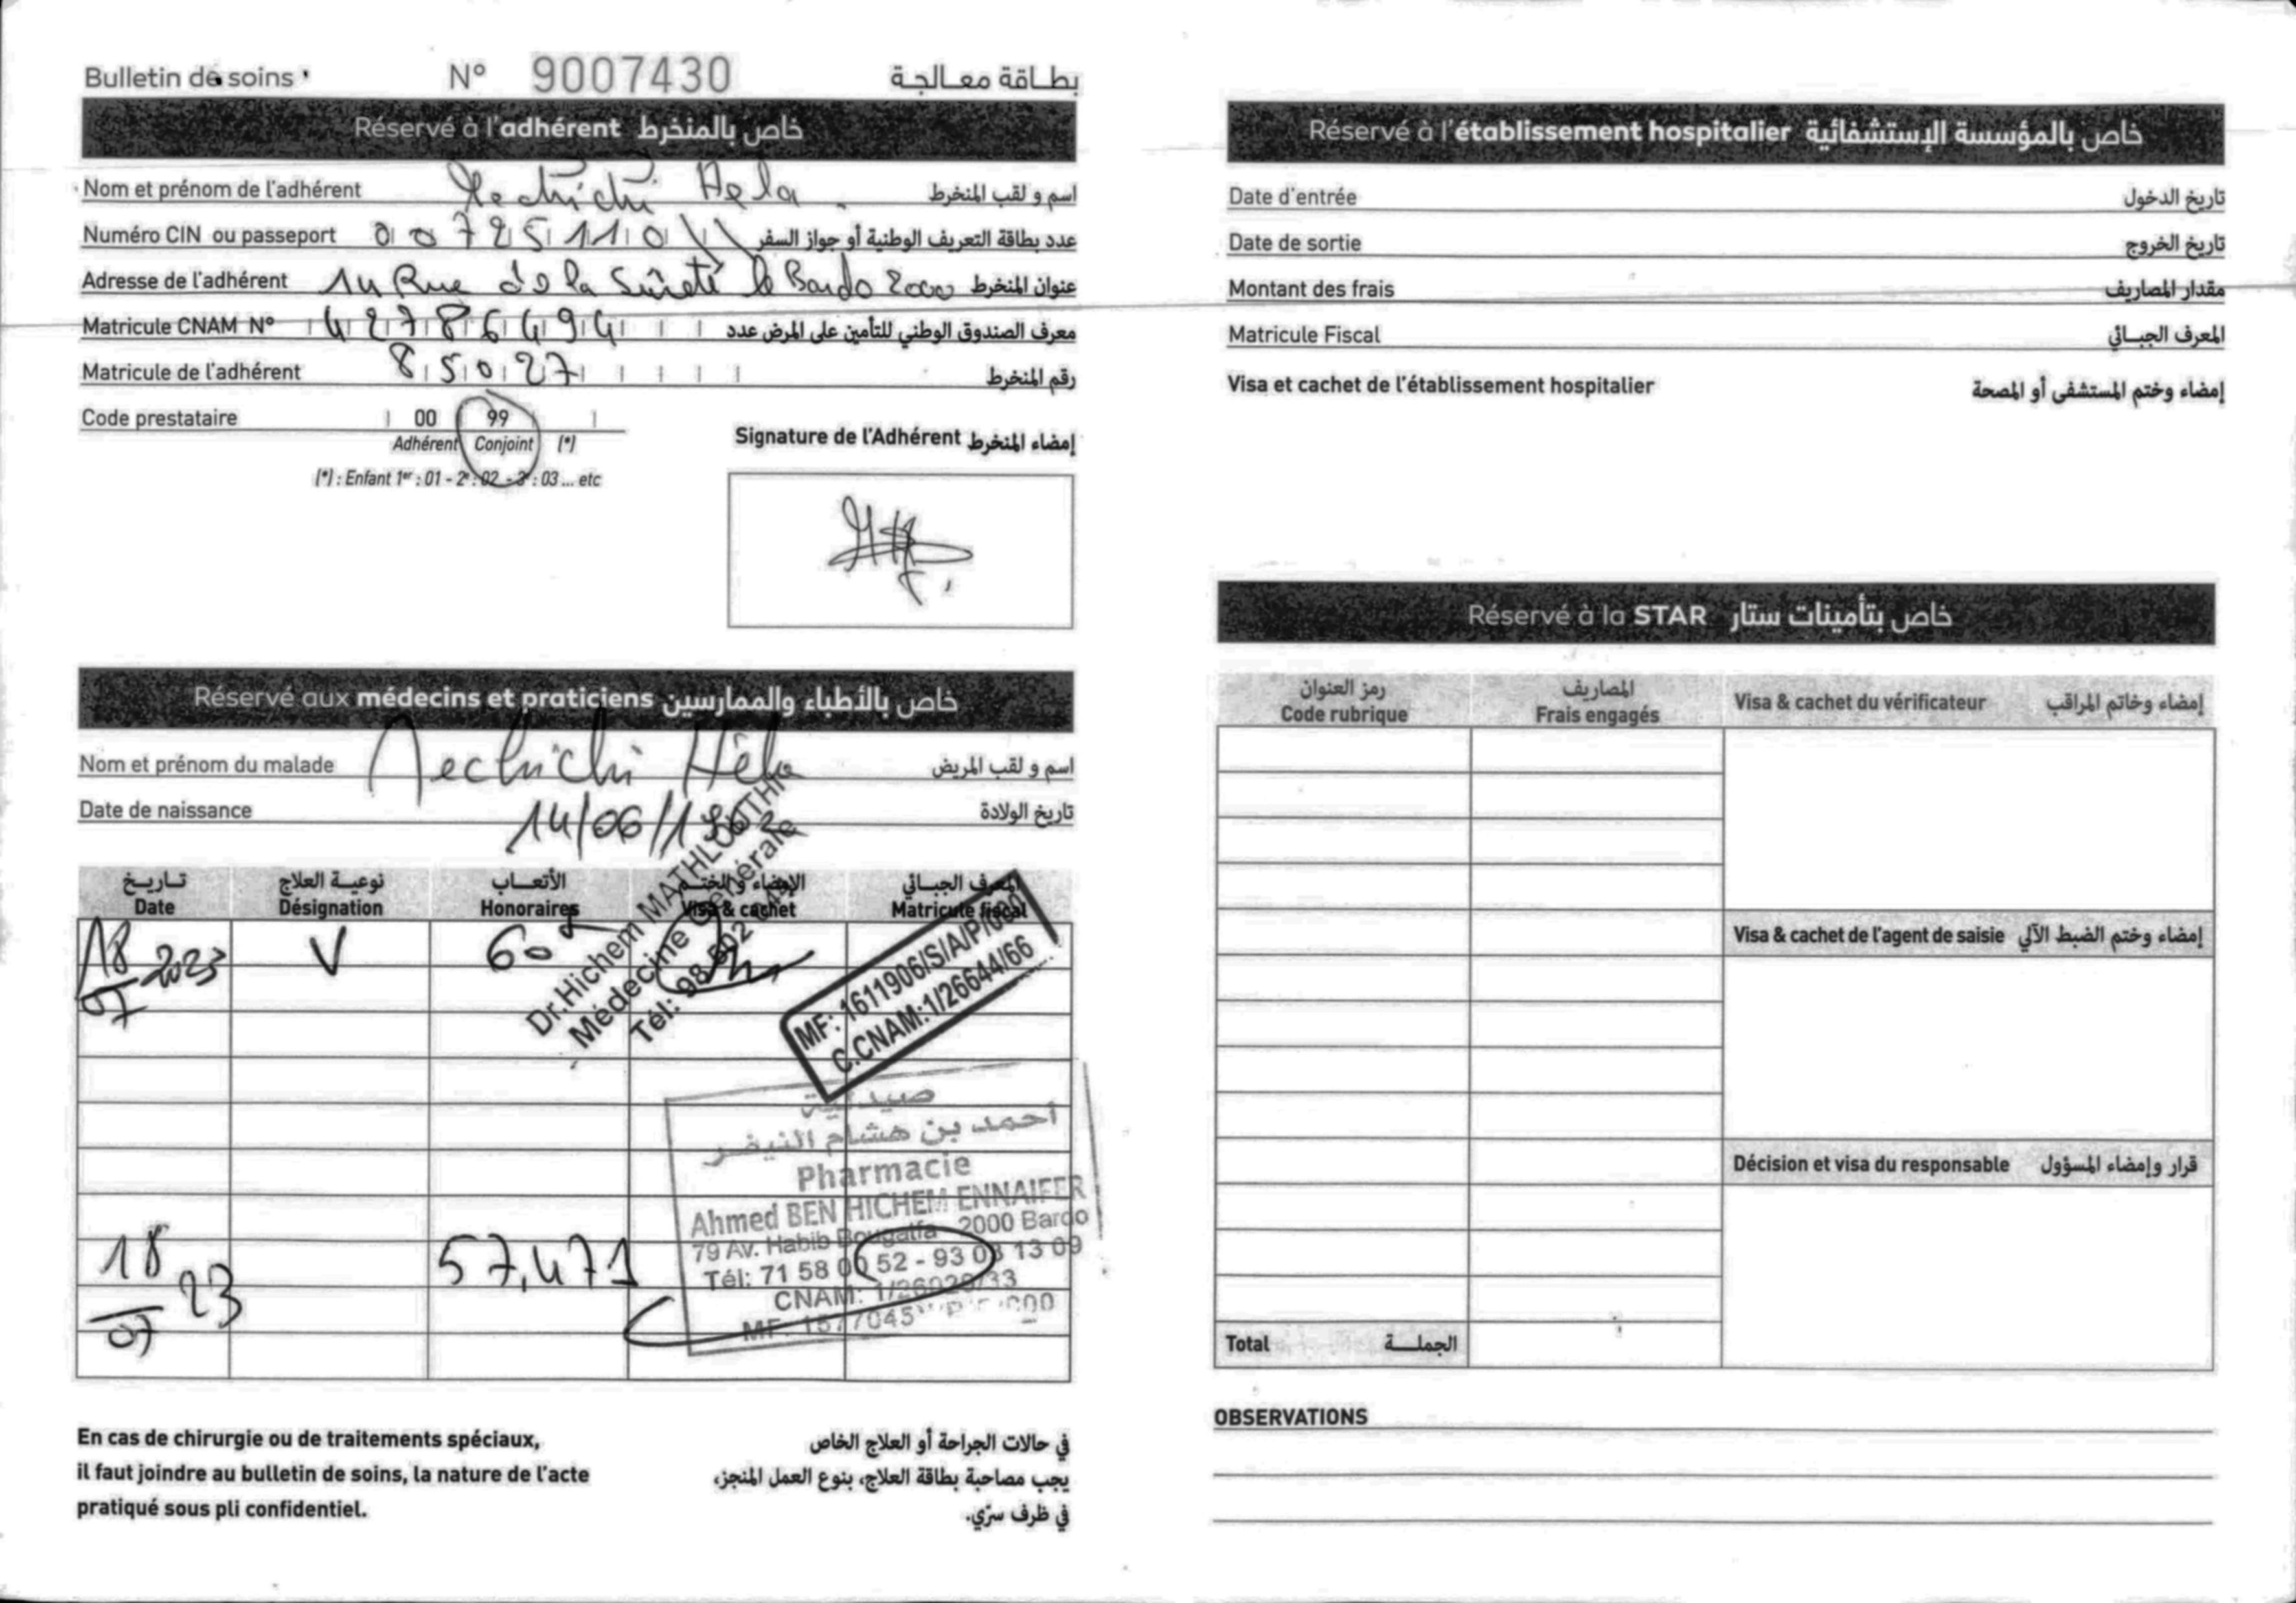 Bulletin de soins N° 9007430 بطاقة معالجة
Réservé à l'adhérent خاص بالمنخرط
Nom et prénom de l'adhérent Mechichi Hela اسم و لقب المنخرط
Numéro CIN ou passeport 00725110 عدد بطاقة التعريف الوطنية أو جواز السفر
Adresse de l'adhérent 14 Rue de la Sûreté le Bardo 2000 عنوان المنخرط
Matricule CNAM N° 42786494 معرف الصندوق الوطني للتأمين على المرض عدد
Matricule de l'adhérent 85027 رقم المنخرط
Code prestataire 00 99
Adhérent Conjoint (*)
(*) : Enfant 1er : 01 - 2e : 02 - 3e : 03 ... etc
Signature de l'Adhérent إمضاء المنخرط
Réservé aux médecins et praticiens خاص بالأطباء والممارسين
Nom et prénom du malade Mechichi Héla اسم و لقب المريض
Date de naissance 14/06/1962 تاريخ الولادة
تاريخ نوعية العلاج الأتعاب الإمضاء و الختم المعرف الجبائي
Date Désignation Honoraires Visa & cachet Matricule fiscal
18/07 2023 V 60
Dr.Hichem MATHLOUTHI
Médecine Générale
Tél: 98 502
MF: 1611906/S/A/P/000
C.CNAM:1/26644/66
صيدلية
أحمد بن هشام النيفر
Pharmacie
Ahmed BEN HICHEM ENNAIFER
79 Av. Habib Bougatfa 2000 Bardo
Tél: 71 58 00 52 - 93 03 13 09
CNAM: 1/26029/33
MF: 1577045 000
18/07 23 57,471
En cas de chirurgie ou de traitements spéciaux,
il faut joindre au bulletin de soins, la nature de l'acte
pratiqué sous pli confidentiel.
في حالات الجراحة أو العلاج الخاص
يجب مصاحبة بطاقة العلاج، بنوع العمل المنجز،
في ظرف سرّي.
Réservé à l'établissement hospitalier خاص بالمؤسسة الإستشفائية
Date d'entrée تاريخ الدخول
Date de sortie تاريخ الخروج
Montant des frais مقدار المصاريف
Matricule Fiscal المعرف الجبائي
Visa et cachet de l'établissement hospitalier إمضاء وختم المستشفى أو المصحة
Réservé à la STAR خاص بتأمينات ستار
رمز العنوان المصاريف
Code rubrique Frais engagés Visa & cachet du vérificateur إمضاء وخاتم المراقب
Visa & cachet de l'agent de saisie إمضاء وختم الضبط الآلي
Décision et visa du responsable قرار وإمضاء المسؤول
Total الجملة
OBSERVATIONS